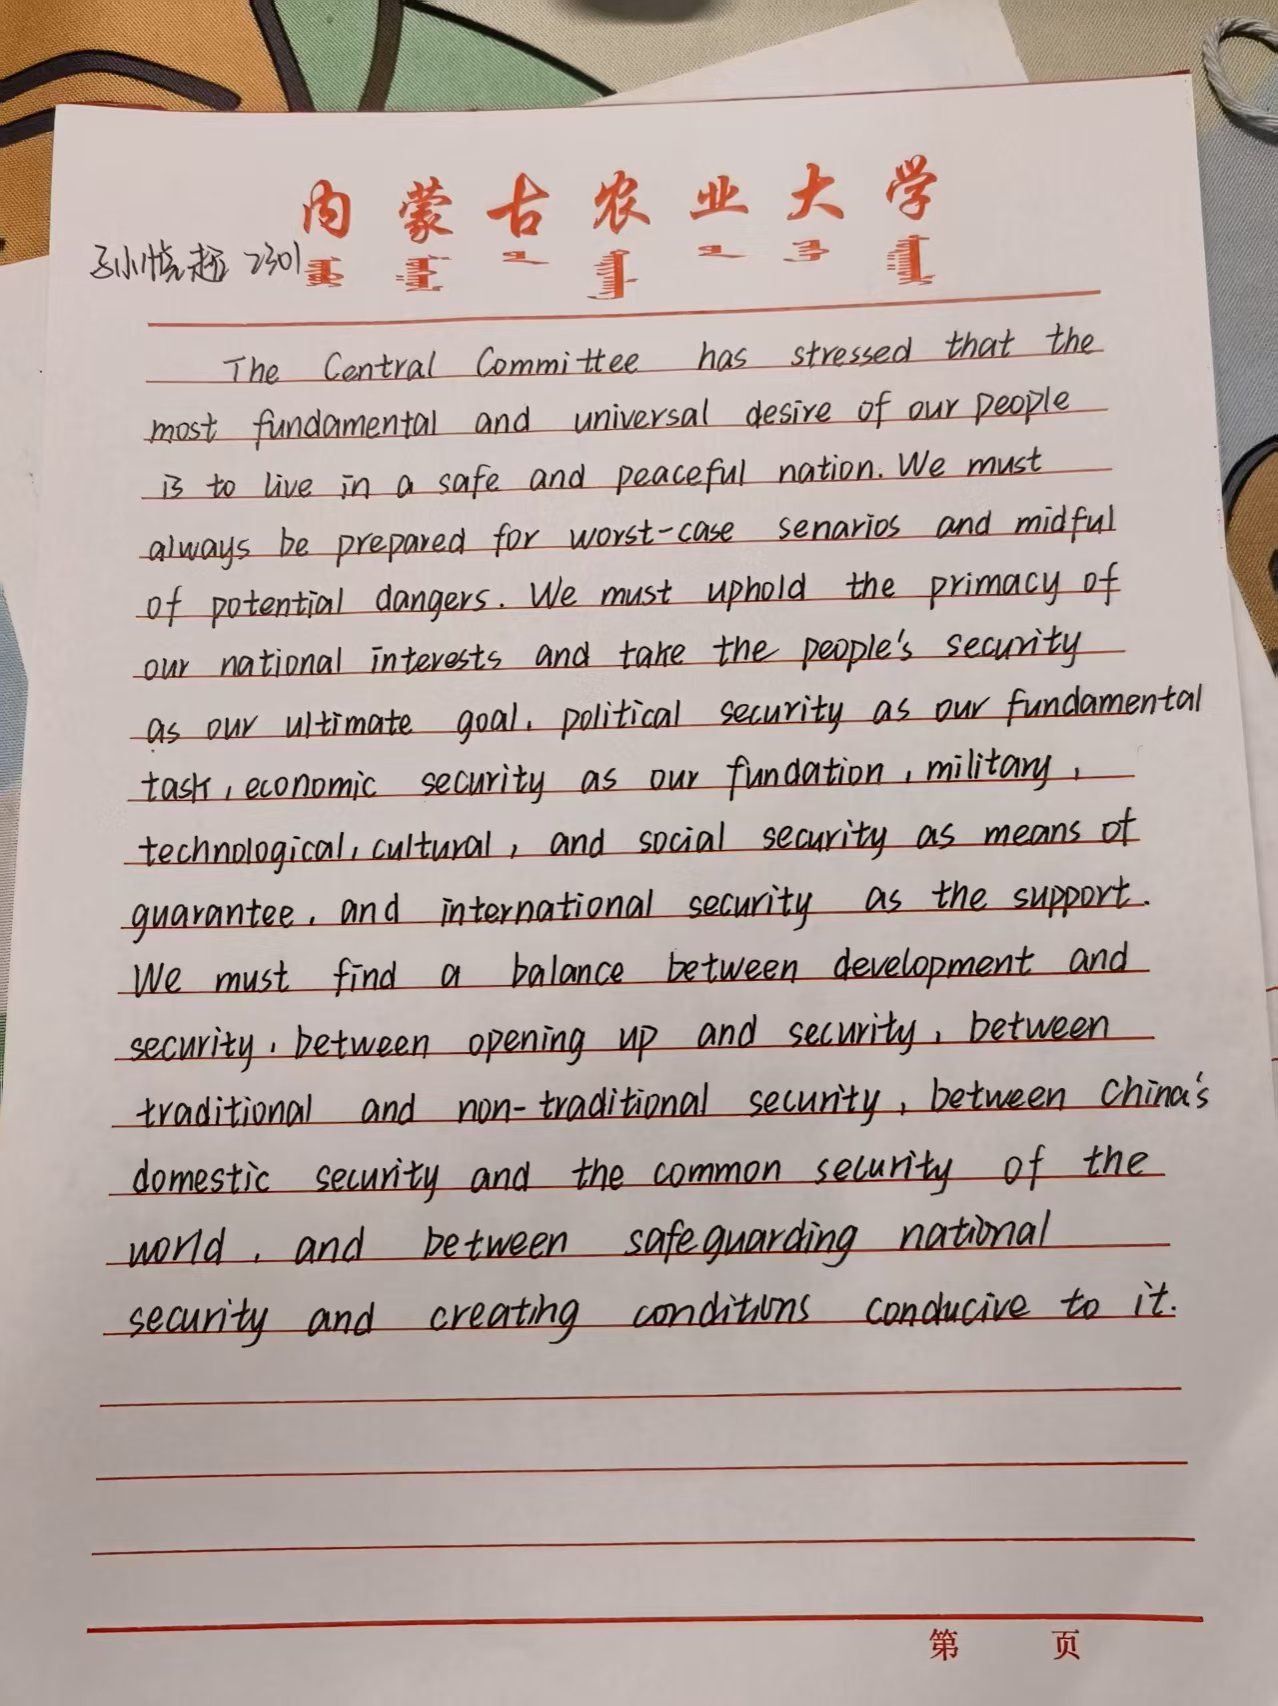 内蒙古农业大学
2301
The Central Committee has stressed that the
most fundamental and universal desire of our people
is to live in a safe and peaceful nation. We must
always be prepared for worst-case senarios and midful
of potential dangers. We must uphold the primacy of
our national interests and take the people's security
as our ultimate goal, political security as our fundamental
task, economic security as our fundation, military,
technological, cultural, and social security as means of
guarantee, and international security as the support.
We must find a balance between development and
security, between opening up and security, between
traditional and non-traditional security, between China's
domestic security and the common security of the
world, and between safeguarding national
security and creating conditions conducive to it.
第 页